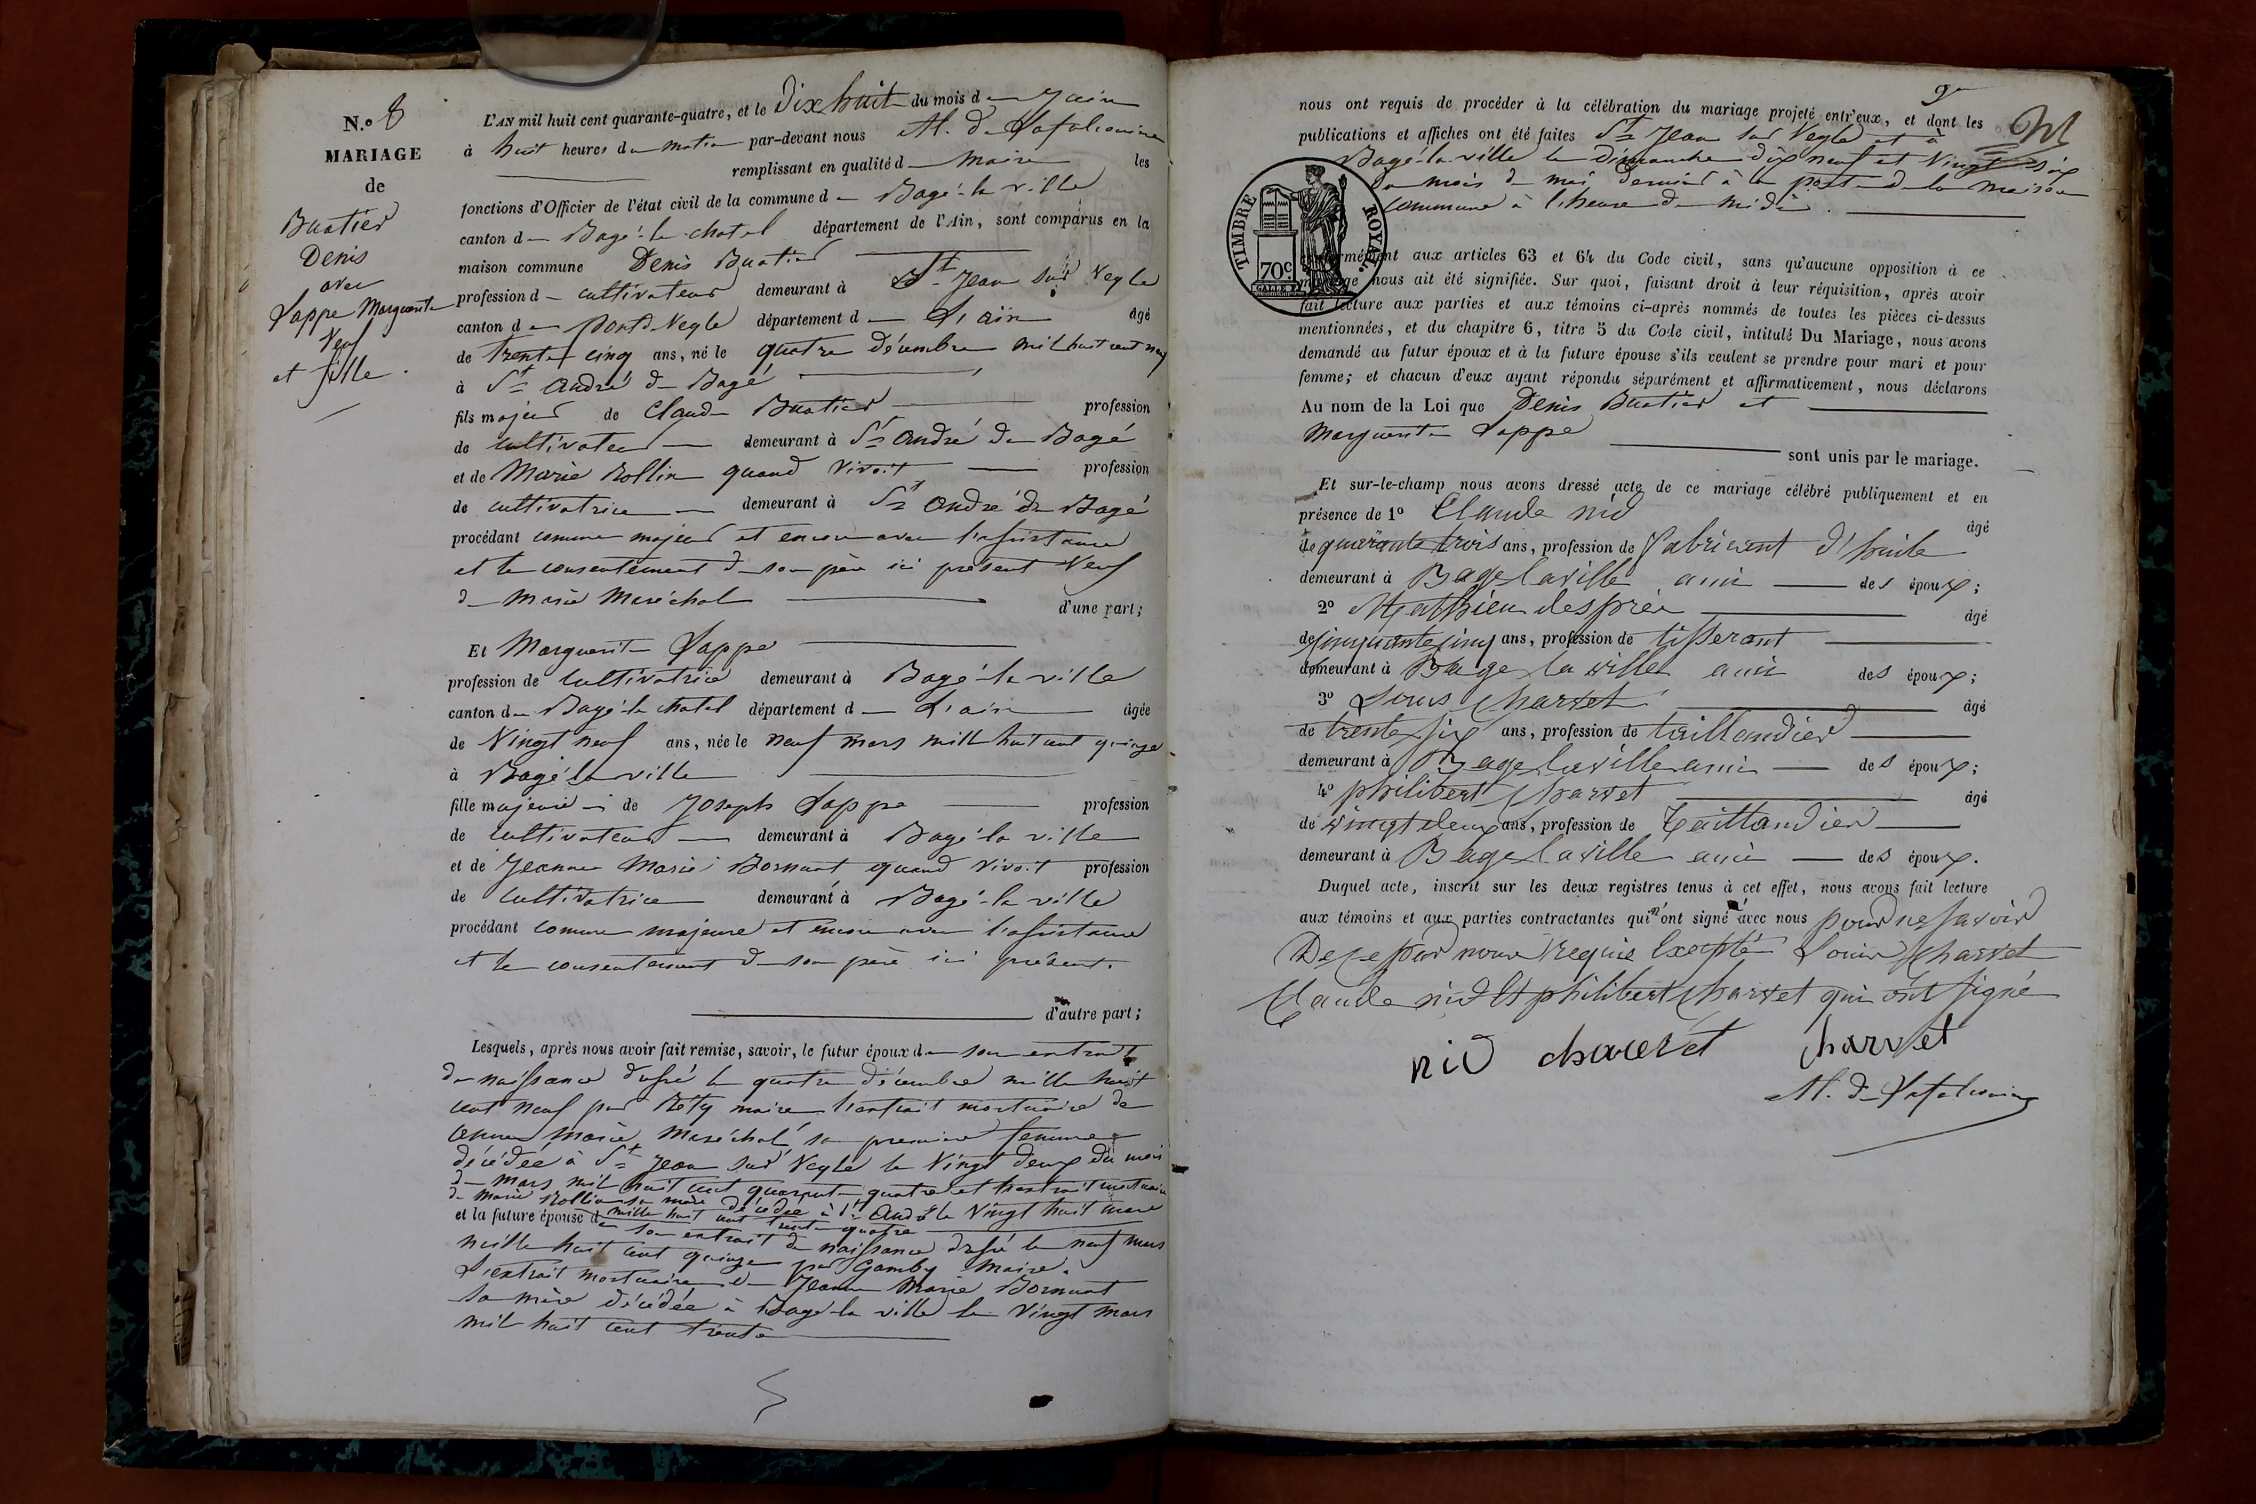 N.º 8
MARIAGE
de
Buatier
Denis
avec
Lappe Marguerite
Veuf
et fille.
L'AN mil huit cent quarante-quatre, et le Dix huit du mois de Juin
à huit heures du matin par-devant nous M. de Lafalconnière
remplissant en qualité de Maire les
fonctions d'Officier de l'état civil de la commune de Bagé-la ville
canton de Bagé-le chatel département de l'Ain, sont comparus en la
maison commune Denis Buatier
profession de cultivateur demeurant à St Jean sur Veyle
canton de pont de Veyle département de L'ain âgé
de trente cinq ans, né le quatre décembre mil huit cent neuf
à St André de Bagé
fils majeur de Claude Buatier profession
de cultivateur demeurant à St André de Bagé
et de Marie Rollin quand vivoit profession
de cultivatrice demeurant à St André de Bagé
procédant comme majeur et encore avec l'assistance
et le consentement de son père ici présent Veuf
de Marie Maréchal d'une part;
Et Marguerite Lappe
profession de cultivatrice demeurant à Bagé-la ville
canton de Bagé-le chatel département de L'ain âgée
de Vingt neuf ans, née le neuf mars mille huit cent quinze
à Bagé la ville
fille majeure de Joseph Lappe profession
de cultivateur demeurant à Bagé-la ville
et de Jeanne Marie Bornuat quand vivoit profession
de cultivatrice demeurant à Bagé-la ville
procédant comme majeure et encore avec l'assistance
et le consentement de son père ici présent.
d'autre part;
Lesquels, après nous avoir fait remise, savoir, le futur époux de son extrait
de naissance dressé le quatre décembre mille huit
cent neuf par Réty maire l'extrait mortuaire de
Anne Marie Maréchal sa première femme
décédée à St Jean sur Veyle le Vingt deux du mois
de mars mil huit cent quarante quatre et l'extrait mortuaire
de Marie Rollin sa mère décédée à St André le Vingt huit mars
mille huit cent trente quatre
et la future épouse de son extrait de naissance dressé le neuf mars
mille huit cent quinze par Gamby Maire.
L'extrait mortuaire de Jeanne Marie Bornuat
sa mère décédée à Bagé-la ville le Vingt mars
mil huit cent trente
nous ont requis de procéder à la célébration du mariage projeté entr'eux, et dont les
publications et affiches ont été faites St Jean sur Veyle et à
Bagé-la-ville le dimanche dix neuf et Vingt six
du mois de mai dernier à la porte de la maison
commune à l'heure de midi.
TIMBRE ROYAL.
70c
Conformément aux articles 63 et 64 du Code civil, sans qu'aucune opposition à ce
mariage nous ait été signifiée. Sur quoi, faisant droit à leur réquisition, après avoir
fait lecture aux parties et aux témoins ci-après nommés de toutes les pièces ci-dessus
mentionnées, et du chapitre 6, titre 5 du Code civil, intitulé Du Mariage, nous avons
demandé au futur époux et à la future épouse s'ils veulent se prendre pour mari et pour
femme; et chacun d'eux ayant répondu séparément et affirmativement, nous déclarons
Au nom de la Loi que Denis Buatier et
Marguerite Lappe
sont unis par le mariage.
Et sur-le-champ nous avons dressé acte de ce mariage célébré publiquement et en
présence de 1º Claude nid âgé
de quarante trois ans, profession de fabricant d'huile
demeurant à Bage la ville ami des époux;
2º Mathieu desprée âgé
de cinquante cinq ans, profession de tisserant
demeurant à Bage la ville ami des époux;
3º Louis Charvet âgé
de trente six ans, profession de taillandier
demeurant à Bage la ville ami des époux;
4º philibert Charvet âgé
de vingt deux ans, profession de Taillandier
demeurant à Bage la ville ami des époux.
Duquel acte, inscrit sur les deux registres tenus à cet effet, nous avons fait lecture
aux témoins et aux parties contractantes qui n'ont signé avec nous pour ne savoir
De ce par nous requis Excepté Louis Charvet
Claude nid et philibert Charvet qui ont signé
nid charvet Charvet
M. de Lafalconnière